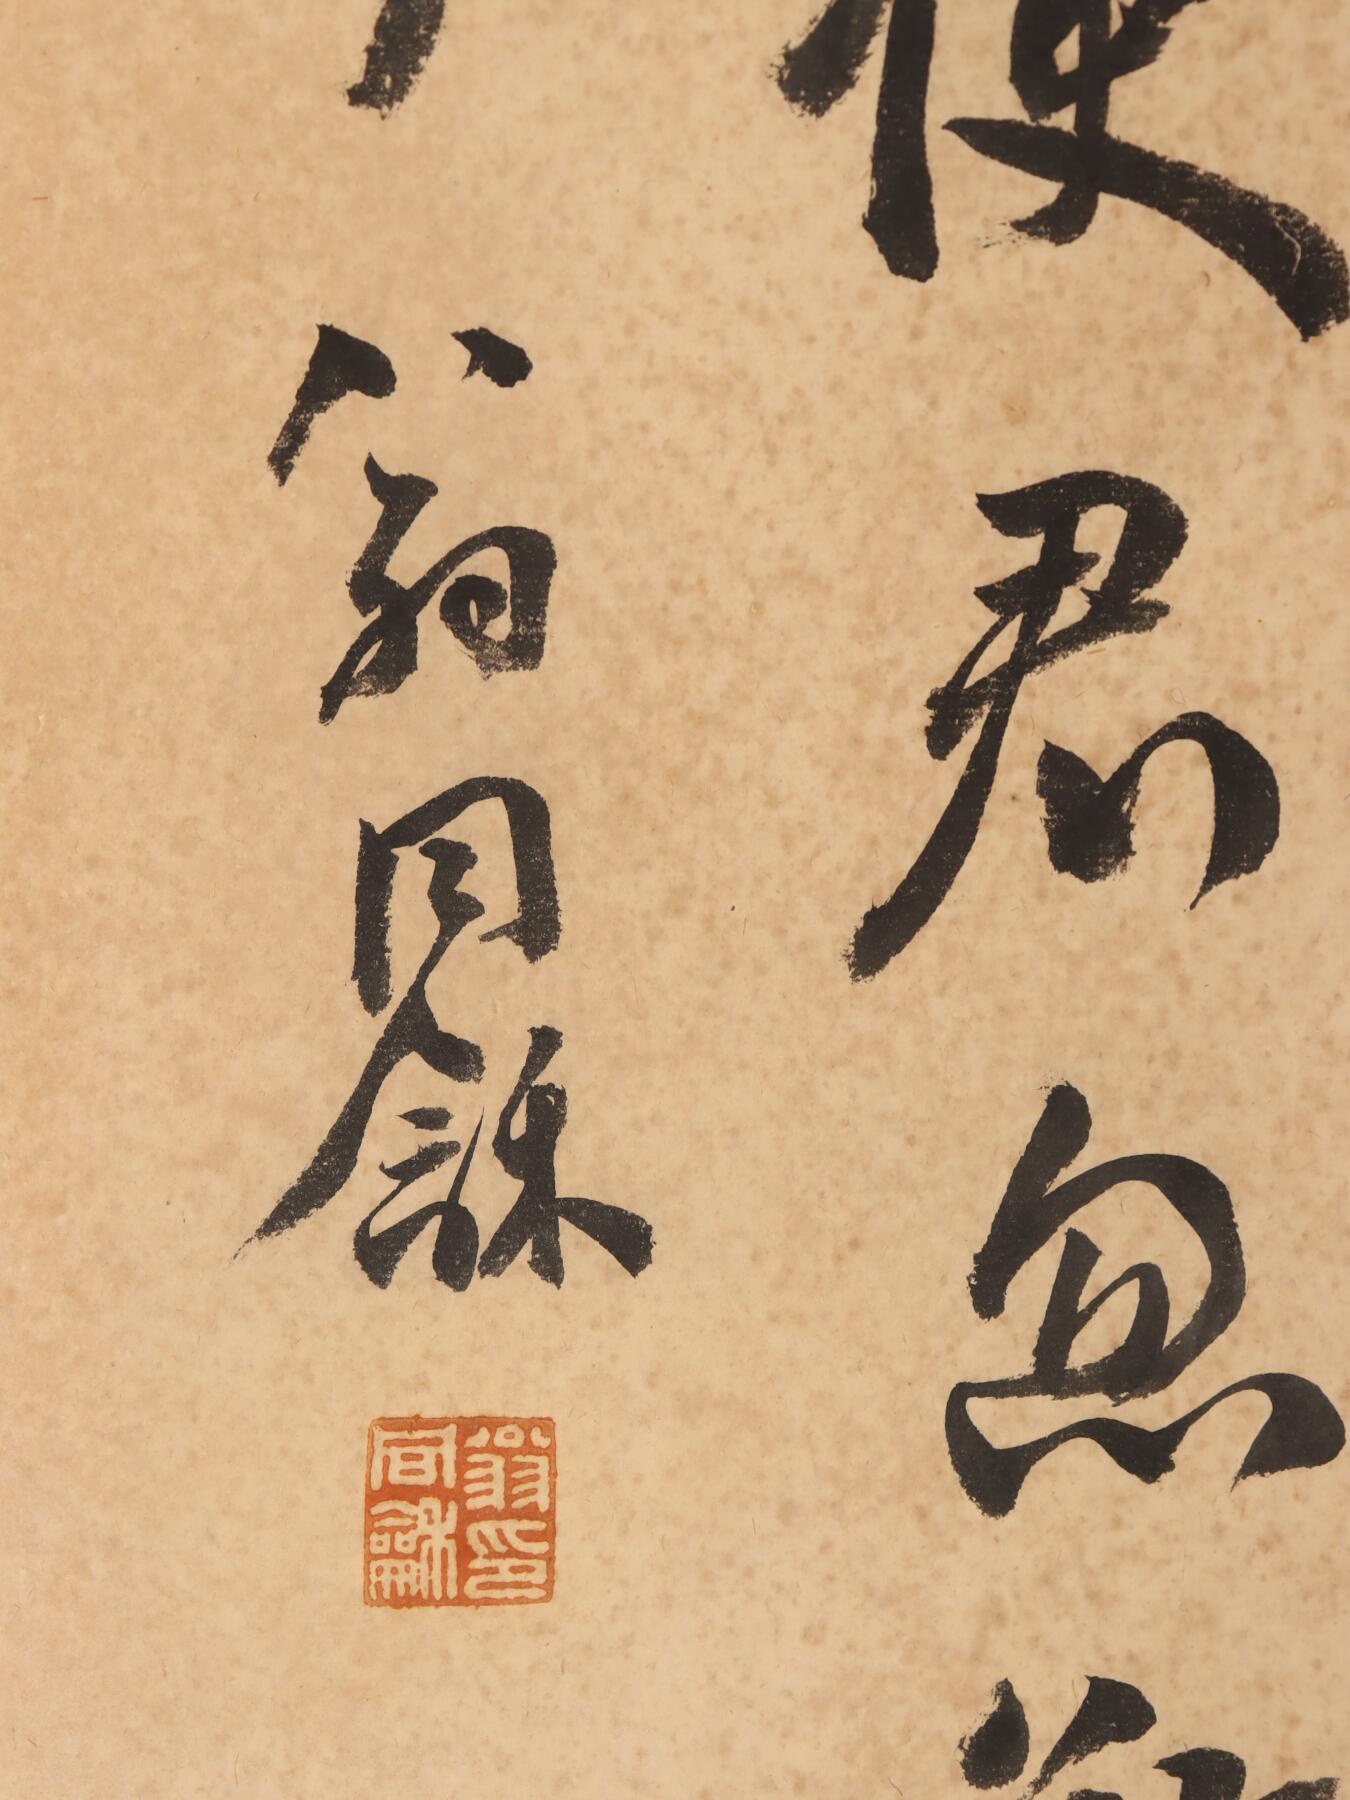 使君忽
翁同龢
翁印
同龢